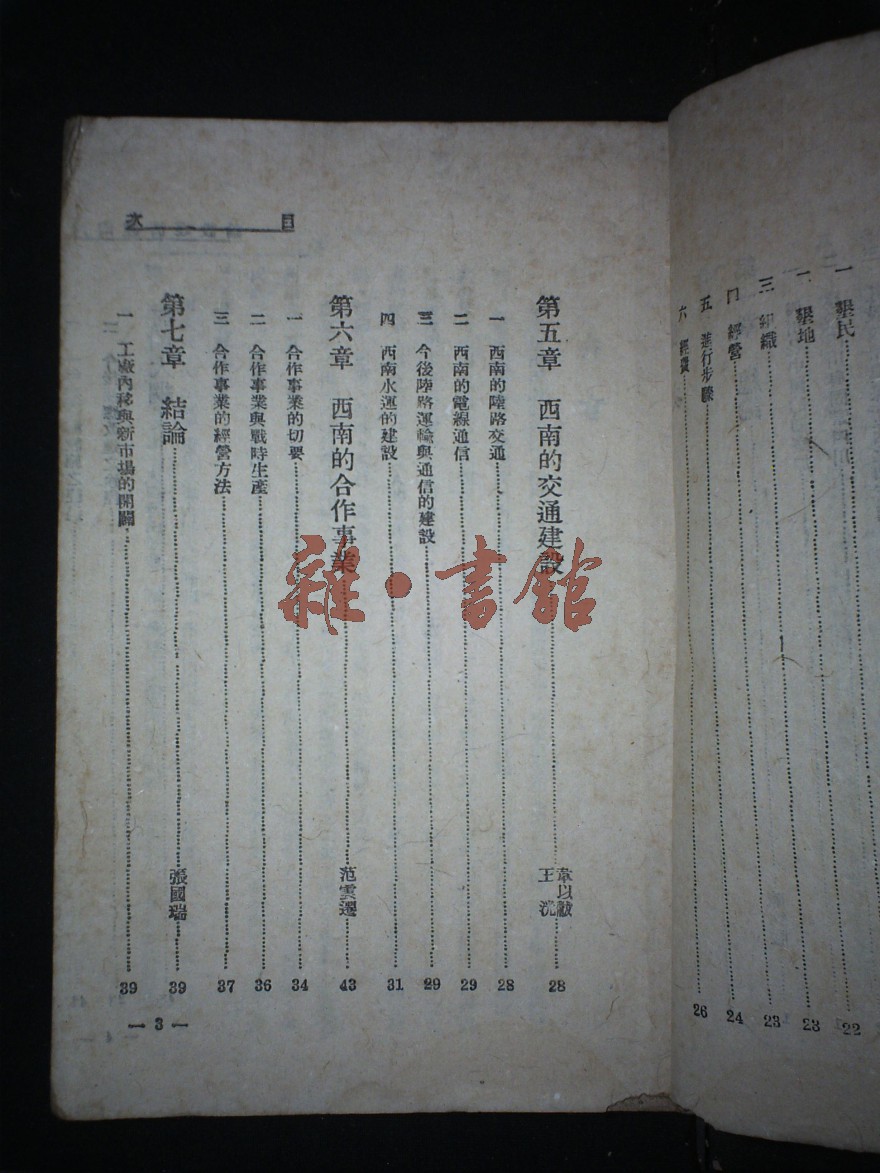 一 墾民 22
墾地 23
三 組織 23
四 經營 24
五 進行步驟
六 經費 26
目次
第五章 西南的交通建設 韋以黻 王洸 28
一 西南的陸路交通 28
二 西南的電線通信 29
三 今後陸路運輸與通信的建設 29
四 西南水運的建設 31
第六章 西南的合作事業 范雲遷 43
一 合作事業的切要 34
二 合作事業與戰時生產 36
三 合作事業的經營方法 37
第七章 結論 張國瑞 39
一 工廠內移與新市場的開闢 39
— 3 —
雜·書館